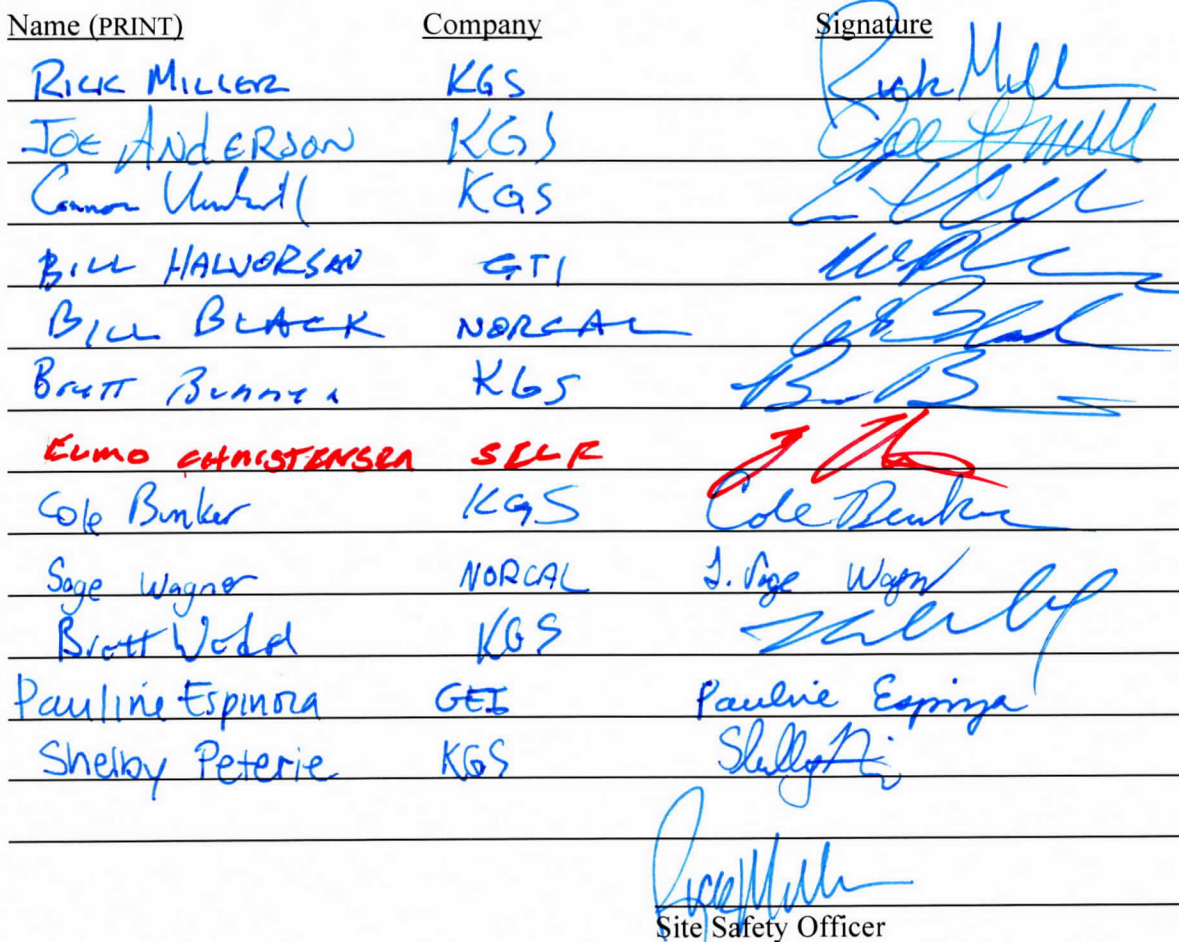 Name (PRINT) Company Signature
RICK MILLER KGS Rick Miller
JOE ANDERSON KGS Joe
Connor KGS
BILL HALVORSAN GTI
BILL BLACK NORCAL
Brett KGS
ELMO CHRISTENSEN SELF
Cole Bunker KGS Cole Bunker
Sage Wagner NORCAL J. Sage Wagner
Brett Wedel KGS
Pauline Espinoza GEI Pauline Espinoza
Shelby Peterie KGS
Rick Miller
Site Safety Officer